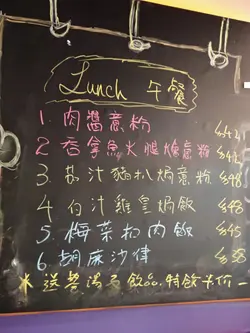 Lunch 午餐
1. 肉醬意粉 $42
2 吞拿魚火腿燴意粉 $42
3. 茄汁豬扒焗意粉 $48
4 白汁雞皇焗飯 $48
5. 梅菜扣肉飯 $45
6. 胡麻沙律 $38
* 送餐湯 飲品. 特飲半价